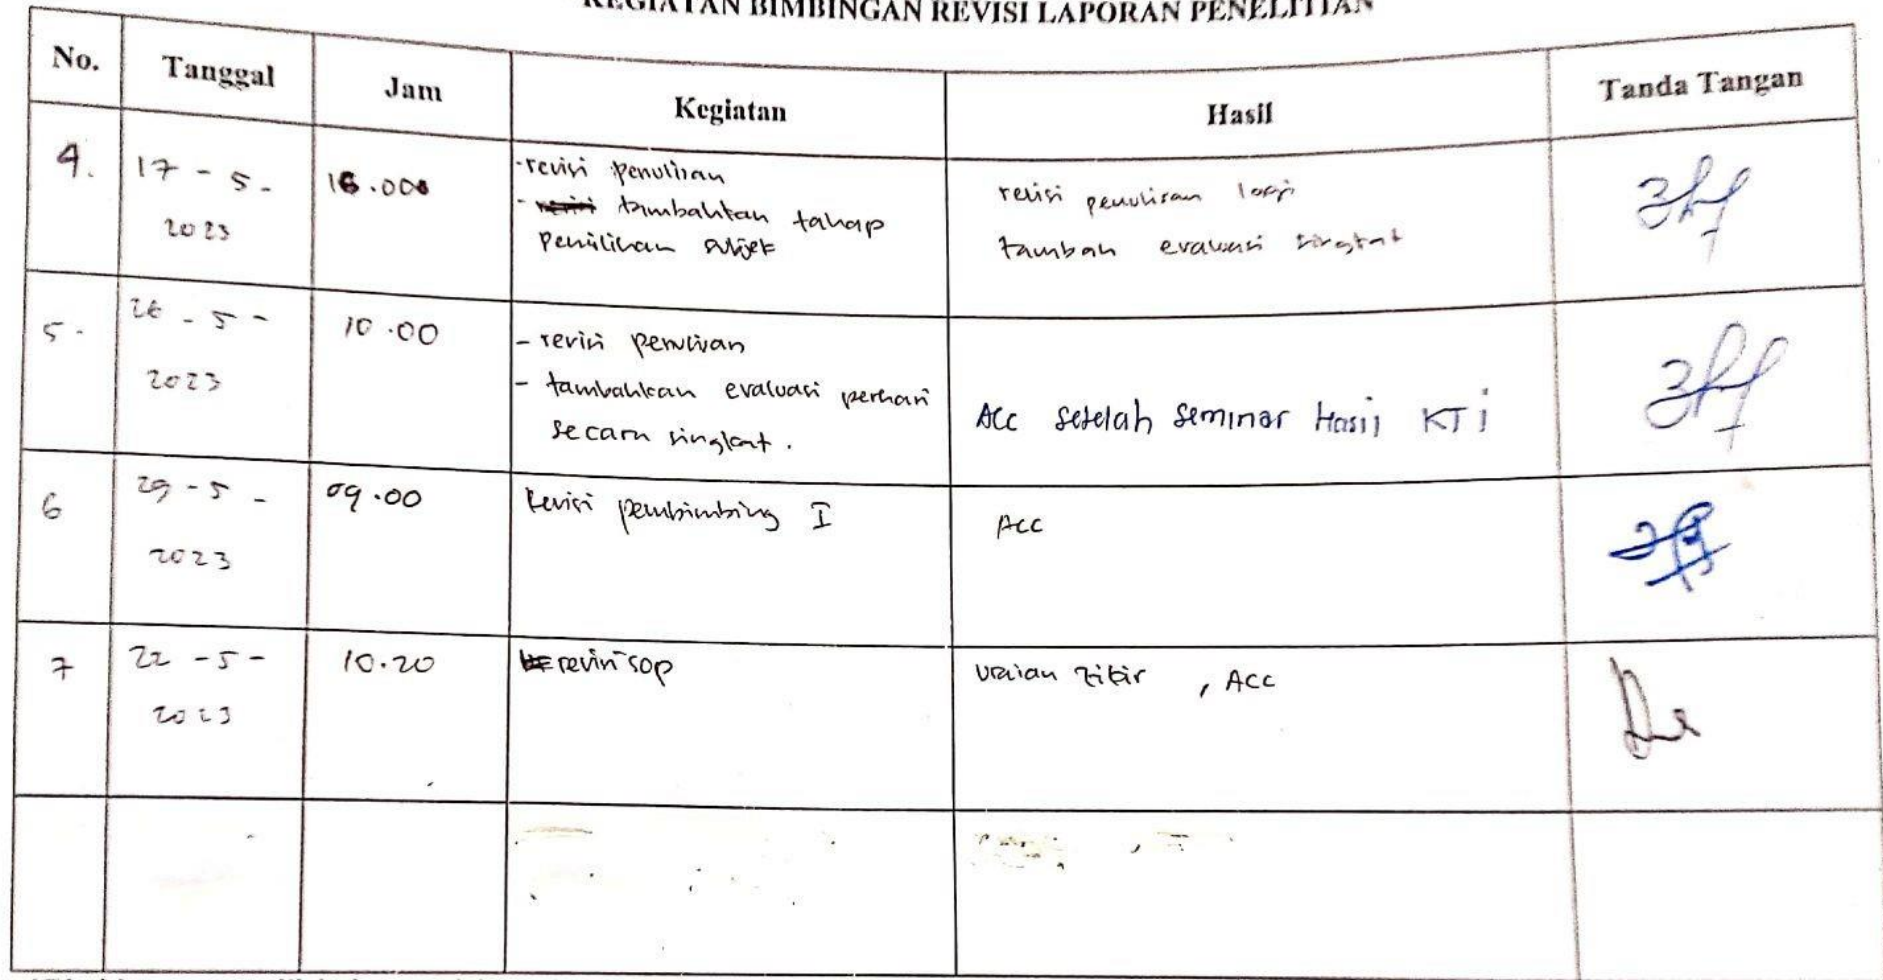 KEGIATAN BIMBINGAN REVISI LAPORAN PENELITIAN
No. Tanggal Jam Kegiatan Hasil Tanda Tangan
4. 17 - 5 - 2023 16.00
- revisi penulisan
- tambahkan tahap
pemilihan subjek
revisi penulisan lagi
tambah evaluasi singkat
5. 26 - 5 - 2023 10.00
- revisi penulisan
- tambahkan evaluasi perhari
secara singkat.
Acc setelah seminar Hasil KTI
6 29 - 5 - 2023 09.00
Revisi pembimbing I
Acc
7 22 - 5 - 2023 10.20
revisi sop
uraian , Acc